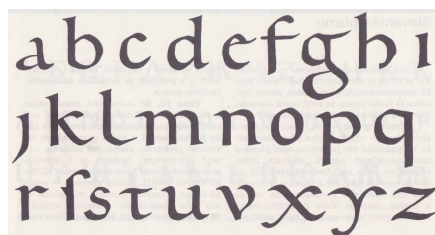 abcdefghı
ȷklmnopq
rſsτuvxyz